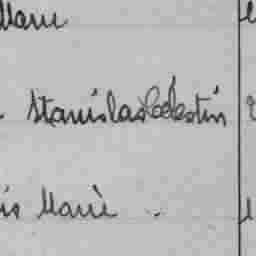 Marie
Stanislas Célestin
is Marie .